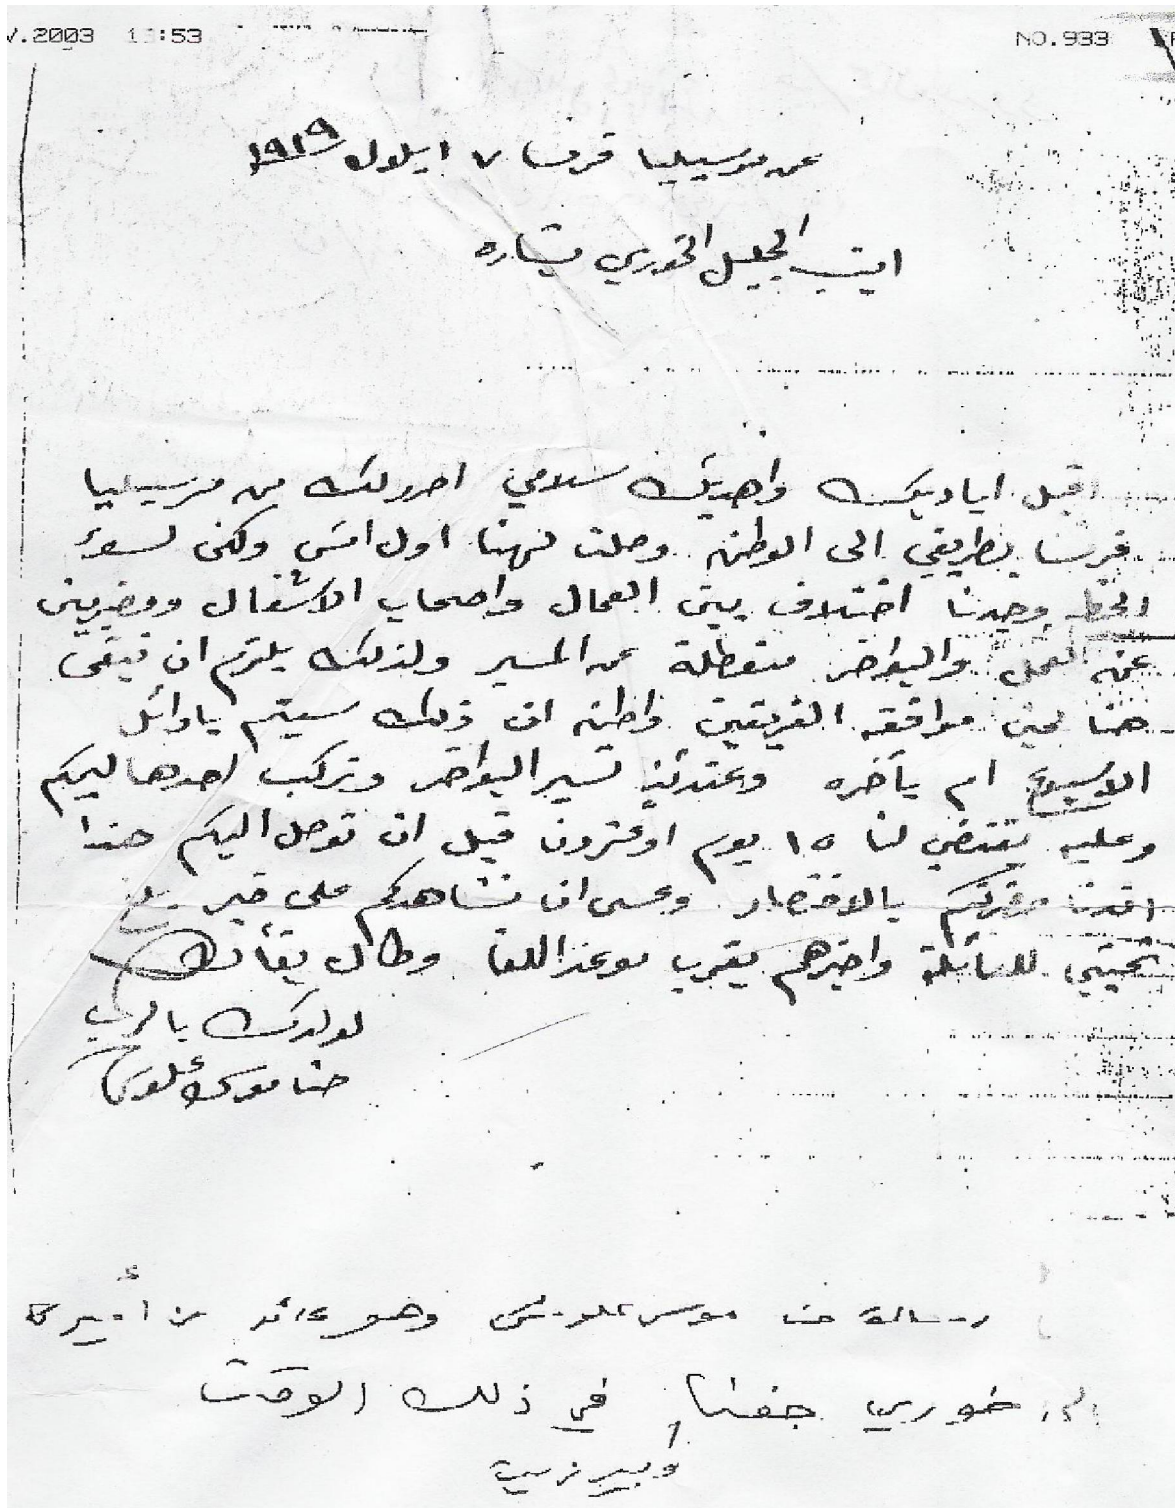 .2003 1 :53 NO.933
عن مرسيليا فرنسا ٧ ايلول ١٩١٩
الجليل الخوري بشاره
اقبل اياديك واهديك سلامي احرر لك من مرسيليا
فرنسا بطريقي الى الوطن وصلت لهنا اول امس ولكن لسوء
الحظ وجدنا اختلاف بين العمال واصحاب الاشغال ومضربين
عن العمل والبواخر متعطلة عن المسير ولذلك يلزم ان نبقى
هنا لحين موافقة الفريقين واظن ان ذلك سيتم باوائل
الاسبوع ام بآخره وعندئذ تسير البواخر ونركب احدها ليمكم
وعليه يقتضي لنا ١٥ يوم او عشرون قبل ان نوصل اليكم هذا
بالاختصار وعسى ان نشاهدكم على خير بلغ
تحيتي للعائلة واخبرهم بقرب موعد اللقا وطال بقائك
لولدك بالرب
حنا موسى علوش
رسالة حنا موسى علوش وهو عائد من أميركا
الى خوري جفنا في ذلك الوقت
وبيرزيت